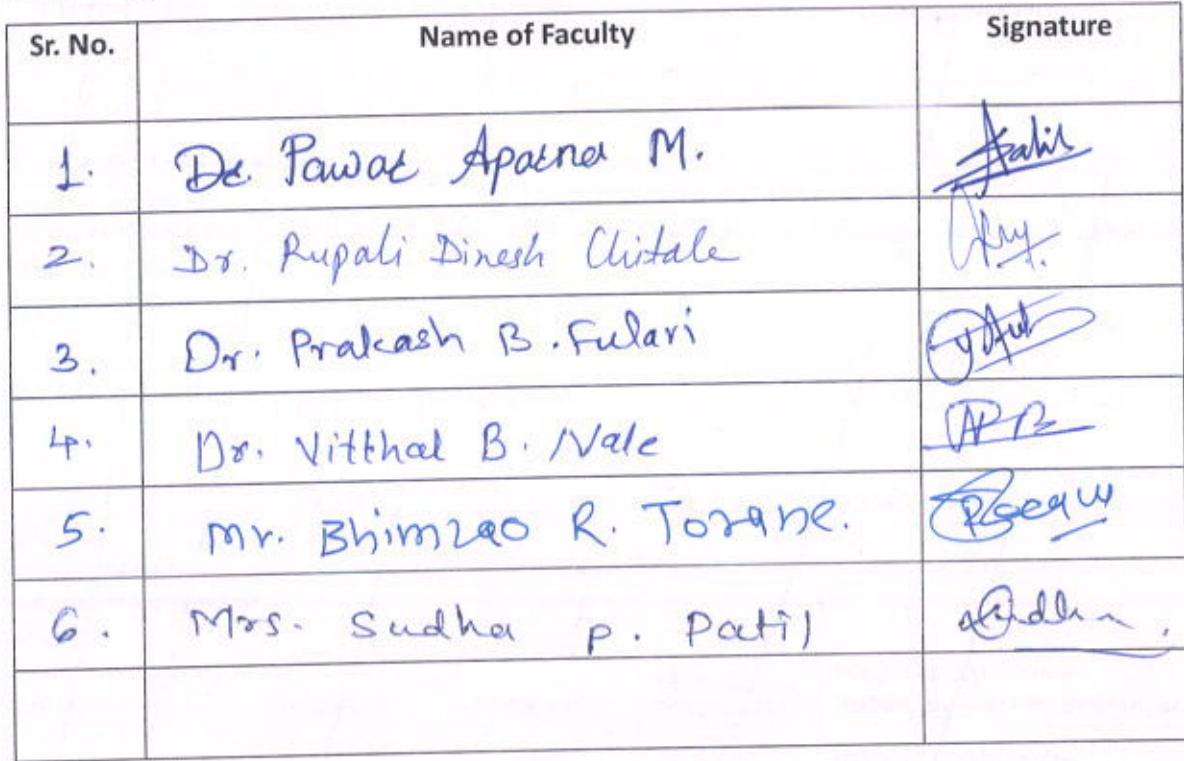 Sr. No. Name of Faculty Signature
1. Dr. Pawar Aparna M.
2. Dr. Rupali Dinesh Chitale
3. Dr. Prakash B. Fulari
4. Dr. Vitthal B. Nale
5. Mr. Bhimrao R. Torane.
6. Mrs. Sudha P. Patil